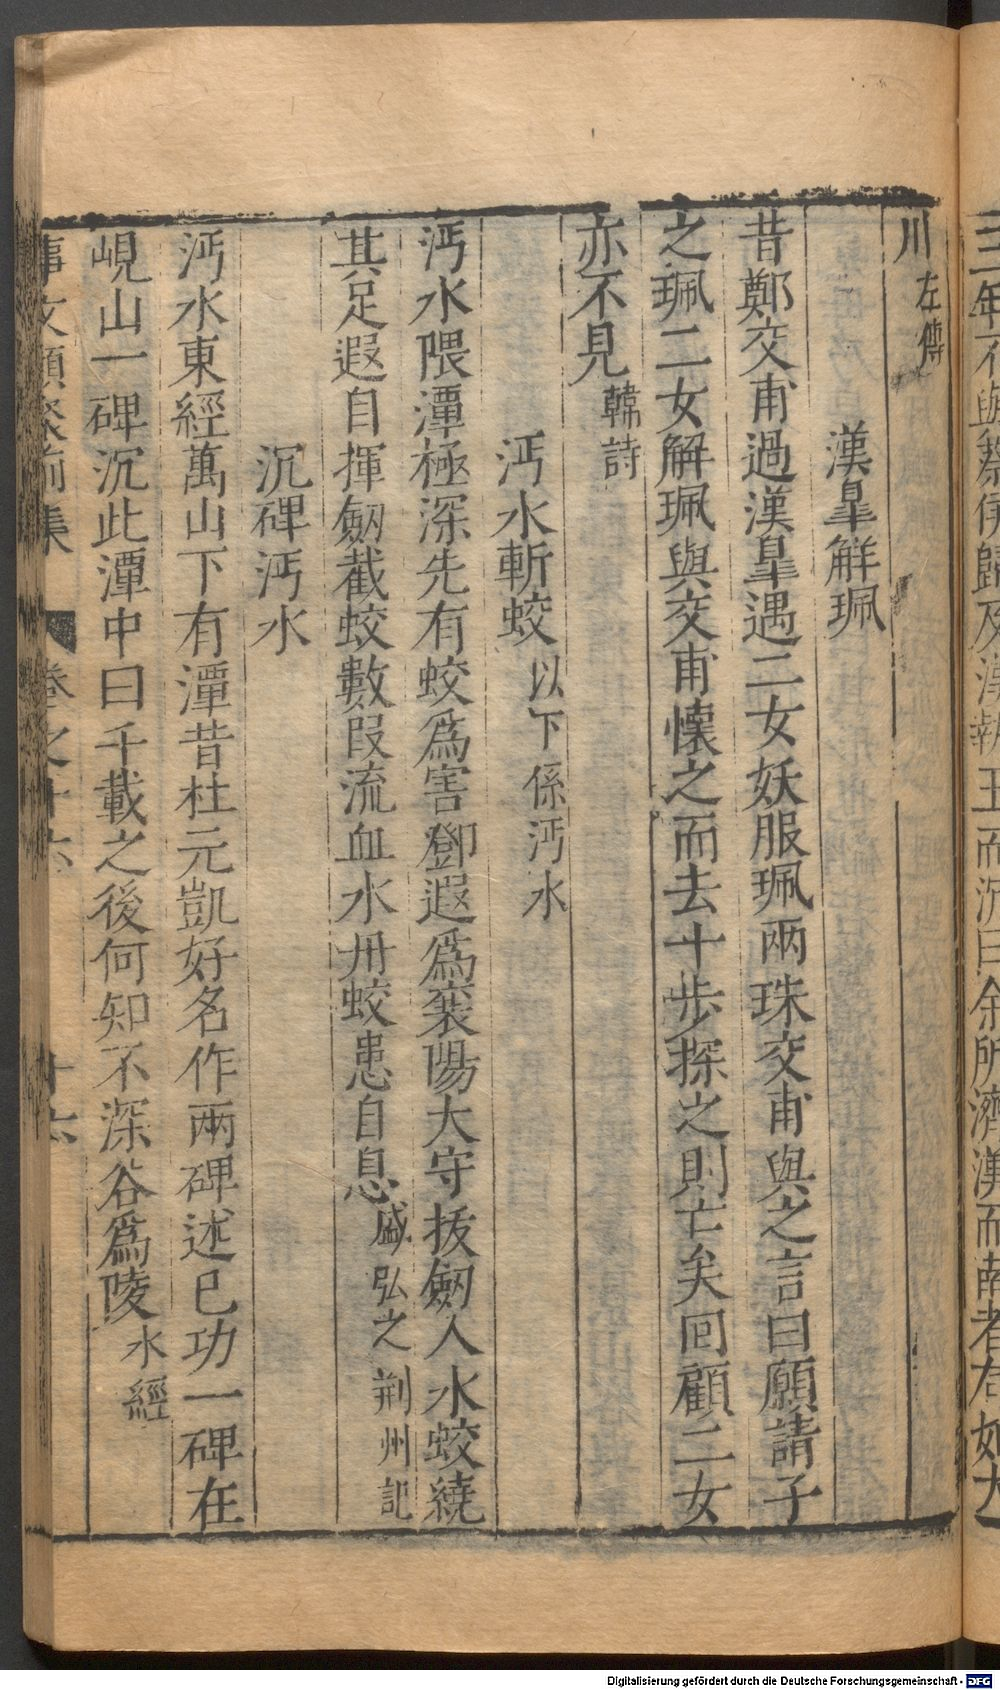 三年不與蔡侯歸及漢執玉而沉曰余所濟漢而南者有如大
川左傳
漢皐解珮
昔鄭交甫過漢皐遇二女妖服珮兩珠交甫與之言曰願請子
之珮二女解珮與交甫懷之而去十步探之則亡矣回顧二女
亦不見韓詩
沔水斬蛟以下係沔水
沔水隈潭極深先有蛟爲害鄧遐爲襄陽大守拔劒入水蛟繞
其足遐自揮劒截蛟數段流血水丹蛟患自息盛弘之荆州記
沉碑沔水
沔水東經萬山下有潭昔杜元凱好名作兩碑述已功一碑在
峴山一碑沉此潭中曰千載之後何知不深谷爲陵水經
事文類聚前集 卷之十六 十六
Digitalisierung gefördert durch die Deutsche Forschungsgemeinschaft - DFG